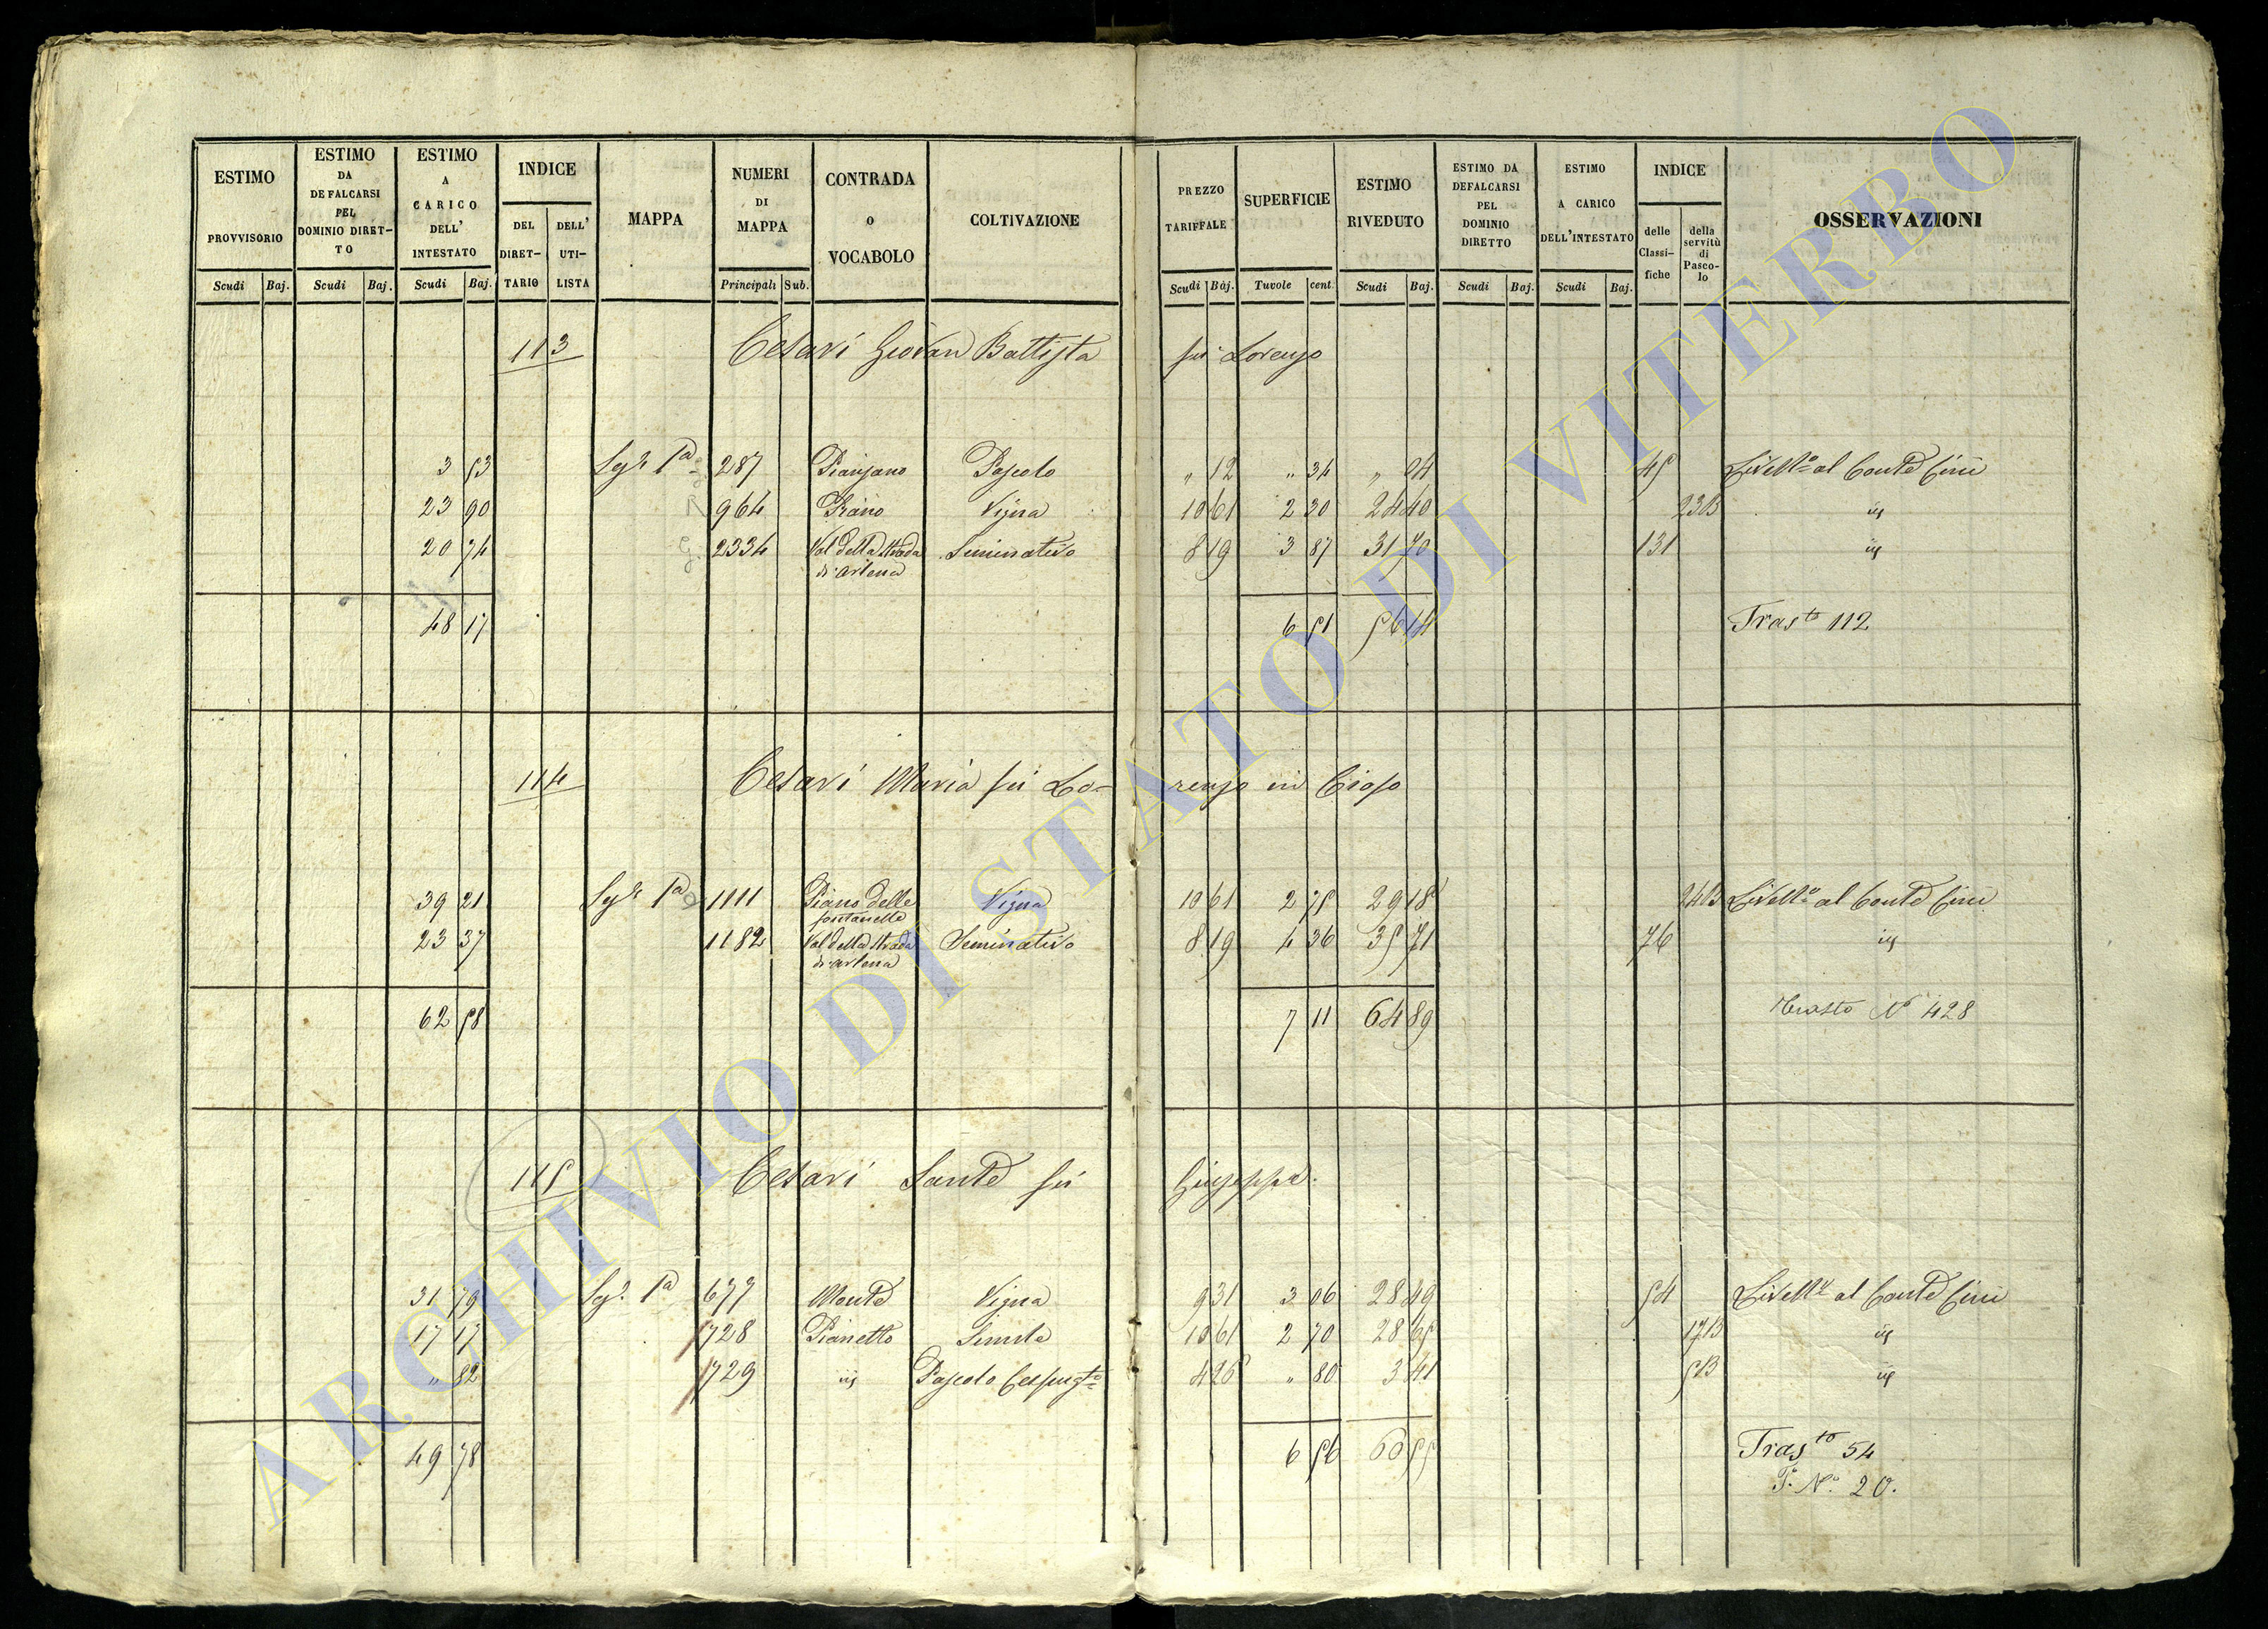 ESTIMO PROVVISORIO Scudi Baj.
ESTIMO DA DEFALCARSI PEL DOMINIO DIRET-TO Scudi Baj.
ESTIMO A CARICO DELL' INTESTATO Scudi Baj.
INDICE DEL DIRET-TARIO DELL' UTI-LISTA
MAPPA
NUMERI DI MAPPA Principali Sub.
CONTRADA o VOCABOLO
COLTIVAZIONE
PREZZO TARIFFALE Scudi Baj.
SUPERFICIE Tavole cent.
ESTIMO RIVEDUTO Scudi Baj.
ESTIMO DA DEFALCARSI PEL DOMINIO DIRETTO Scudi Baj.
ESTIMO A CARICO DELL'INTESTATO Scudi Baj.
INDICE delle Classi-fiche della servitù di Pasco-lo
OSSERVAZIONI
113 Cesari Giovan Battista fu Lorenzo
3 53 Sez.e 1a 287 Piansano Pascolo " 12 " 34 " 04 45 Livell.o al Conte Cini
23 90 964 Piano Vigna 10 61 2 30 24 40 23B id
20 74 2334 Val della Strada di Arlena Seminativo 8 19 3 87 31 70 131 id
48 17 6 51 56 14 Tras.to 112
114 Cesari Maria fu Lo=renzo in
39 21 Sez.e 1a 1111 Piano delle fontanelle Vigna 10 61 2 75 29 18 24B Livell.o al Conte Cini
23 37 1182 Val della Strada di Arlena Seminativo 8 19 4 36 35 71 76 id
62 58 7 11 64 89 Trasto N 428
115 Cesari Sante fu Giuseppe.
31 79 Sez.e 1a 677 Monte Vigna 9 31 3 06 28 49 54 Livell.o al Conte Cini
17 17 1728 Pianetto Simile 10 61 2 70 28 65 17B id
" 82 1729 id Pascolo Cespug.to 4 26 " 80 3 41 5B id
49 78 6 56 60 55 Tras.to 54
P. N.o 20.
ARCHIVIO DI STATO DI VITERBO